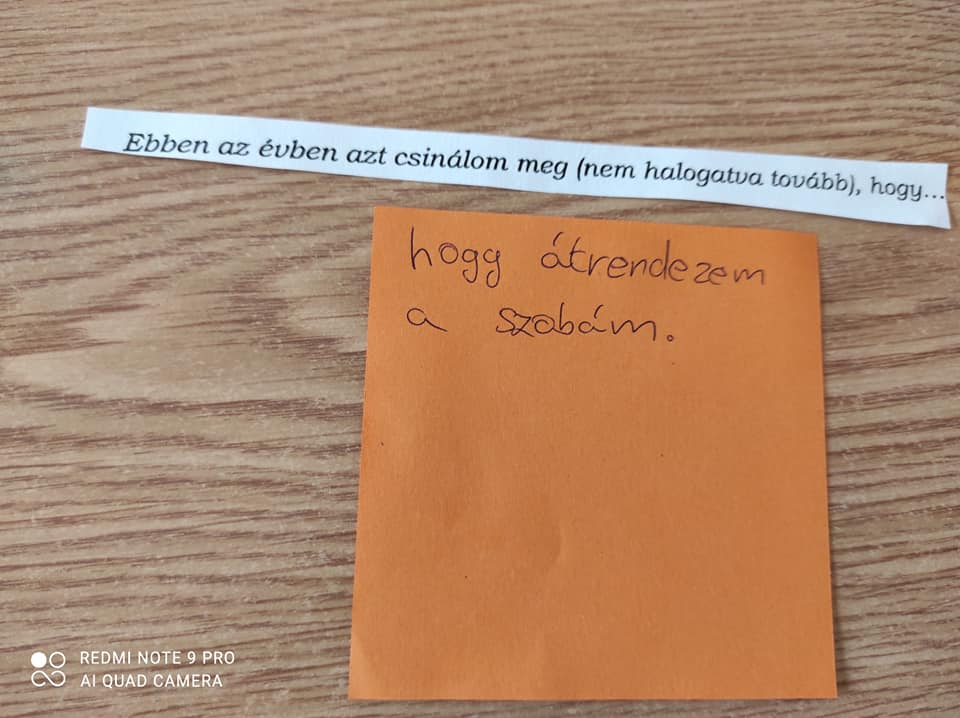 Ebben az évben azt csinálom meg (nem halogatva tovább), hogy...
hogy átrendezem
a szobám.
REDMI NOTE 9 PRO
AI QUAD CAMERA